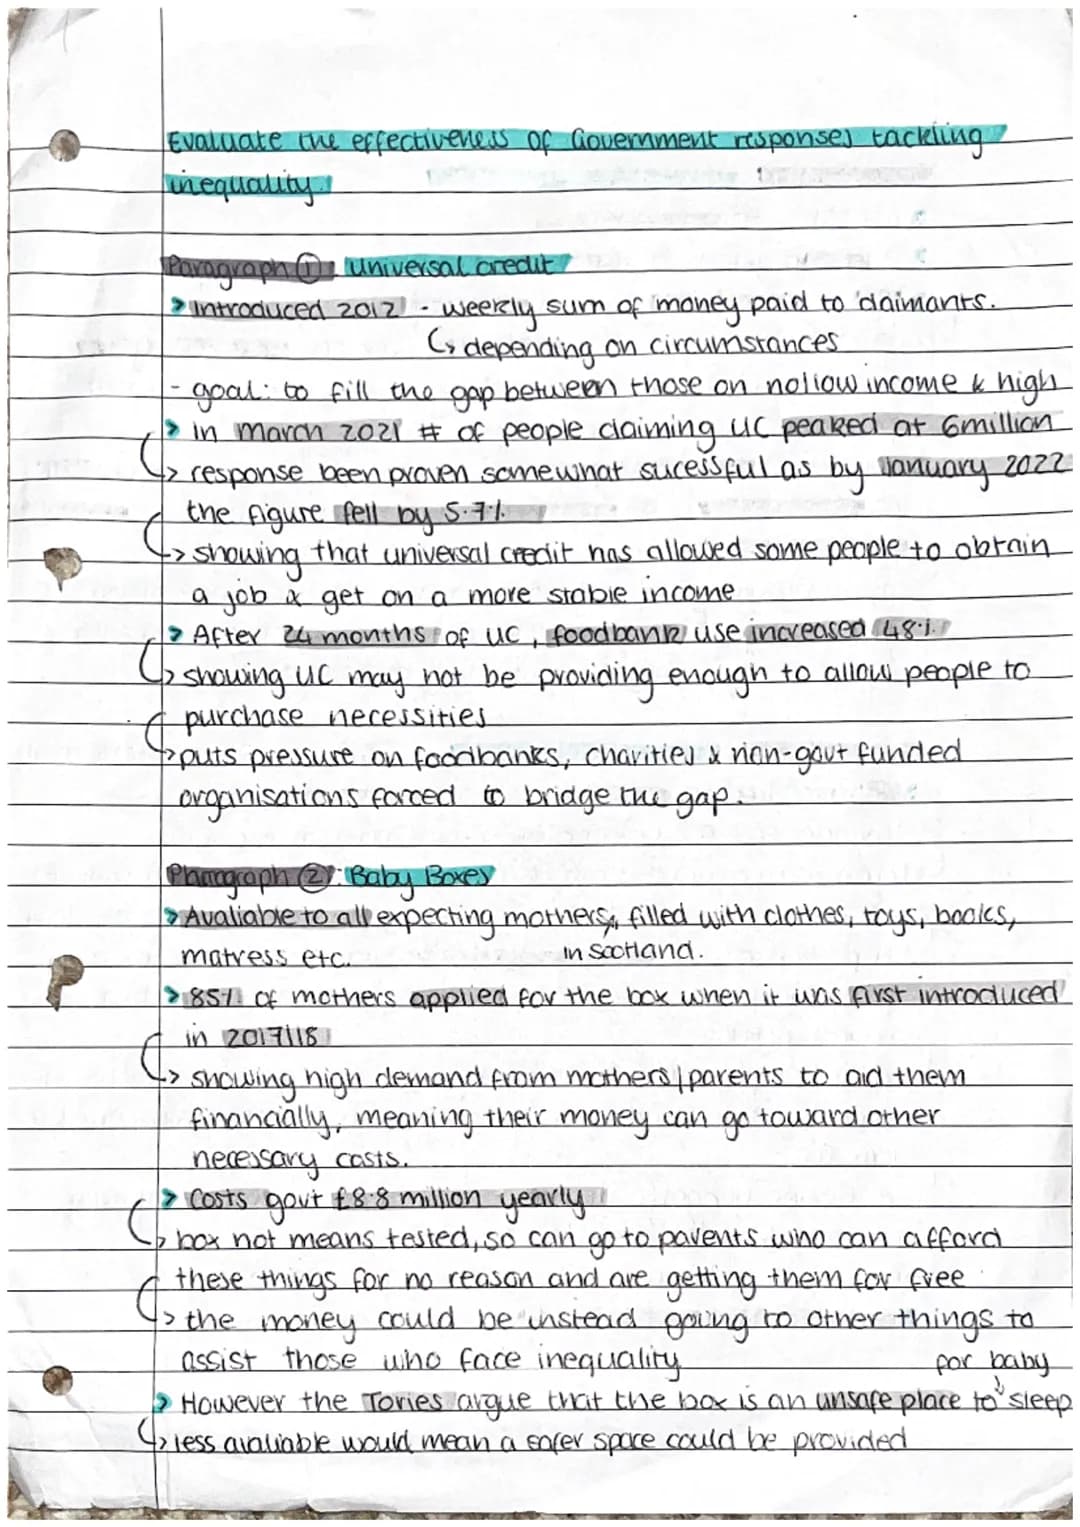 Evaluate the effectiveness of Government responses tackling
inequality.
Paragraph ①: Universal credit
> Introduced 2012 - weekly sum of money paid to claimants.
↳ depending on circumstances
- goal: to fill the gap between those on no/low income & high
> in March 2021 # of people claiming UC peaked at 6million
↳ response been proven somewhat sucessful as by January 2022
the figure fell by 5.7%
↳ showing that universal credit has allowed some people to obtain
a job & get on a more stable income
> After 24 months of UC, foodbank use increased 48%
↳ showing UC may not be providing enough to allow people to
purchase necessities
↳ puts pressure on foodbanks, charities & non-govt funded
organisations forced to bridge the gap.
Paragraph ②: Baby Boxes
> Avaliable to all expecting mothers, filled with clothes, toys, books,
matress etc. in Scotland.
> 85% of mothers applied for the box when it was first introduced
in 2017/18
↳ showing high demand from mothers/parents to aid them
financially, meaning their money can go toward other
necessary costs.
> Costs govt £8.8 million yearly
↳ box not means tested, so can go to parents who can afford
these things for no reason and are getting them for free
↳ the money could be instead going to other things to
assist those who face inequality
for baby
> However the Tories argue that the box is an unsafe place to sleep
↳ less avaliable would mean a safer space could be provided